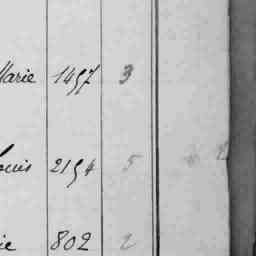 Marie 1457 3
Louis 2154 5
ie 802 2